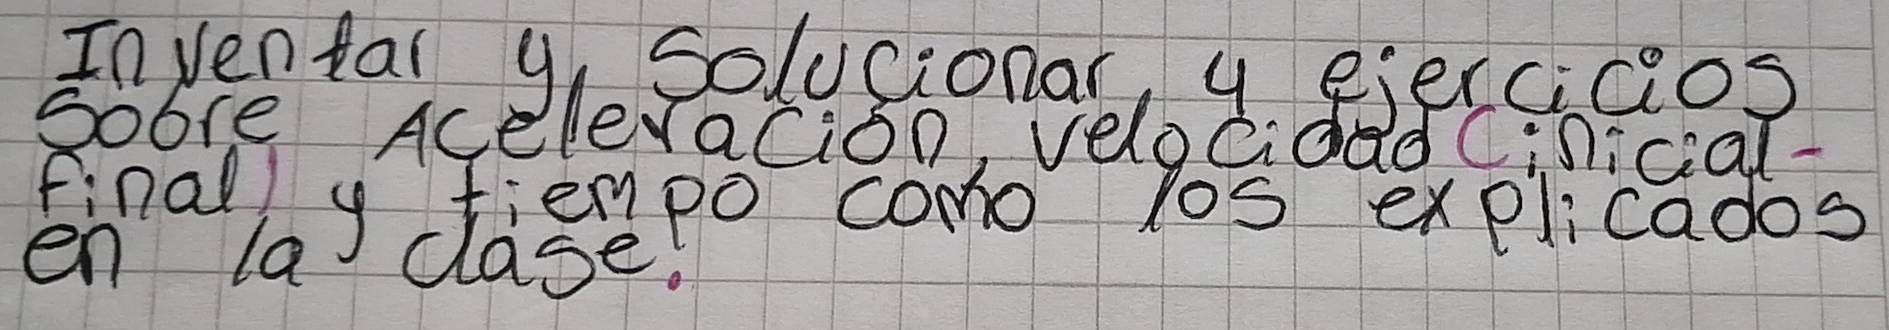 Inventar y, Solucionar, 4 ejercicios
Sobre Aceleración, velocidad (inicial-
final) y tiempo como los explicados
en la clase.